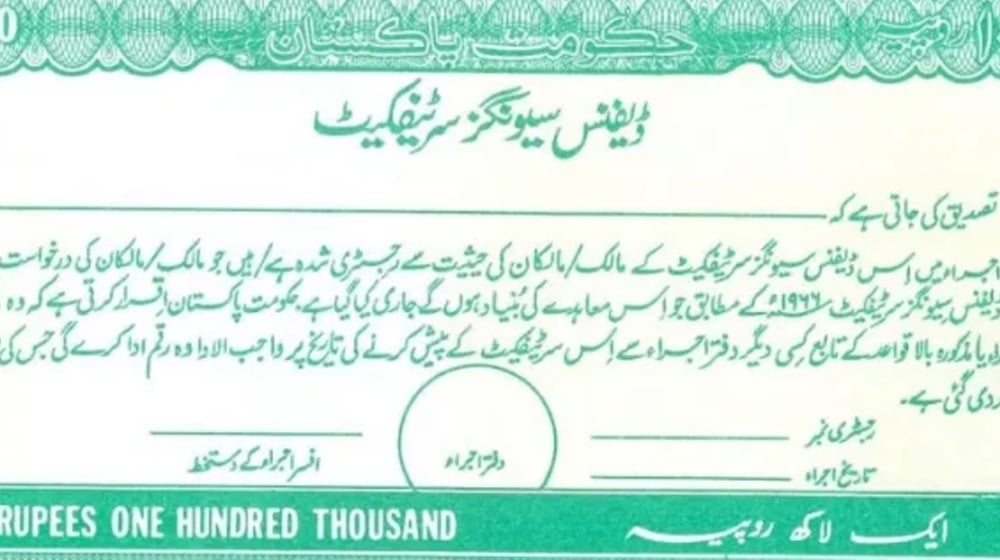 0 حکومت پاکستان ا روپیہ
ڈیفنس سیونگز سرٹیفکیٹ
تصدیق کی جاتی ہے کہ
اجراء میں اِس ڈیفنس سیونگز سرٹیفکیٹ کے مالک/مالکان کی حیثیت سے رجسٹری شدہ ہے/ہیں جو مالک/مالکان کی درخواست
ڈیفنس سیونگز سرٹیفکیٹ ۱۹۶۶ء کے مطابق جو اِس معاہدے کی بُنیاد ہوں گے جاری کیا گیا ہے، حکومت پاکستان اِقرار کرتی ہے کہ وہ
یا مذکورہ بالا قواعد کے تابع کِسی دیگر دفتر اجراء سے اِس سرٹیفکیٹ کے پیش کرنے کی تاریخ پر واجب الادا وہ رقم ادا کرے گی جس کی
دی گئی ہے۔
رجسٹری نمبر
تاریخ اجراء
دفتر اجراء
افسر اجراء کے دستخط
RUPEES ONE HUNDRED THOUSAND ایک لاکھ روپیہ